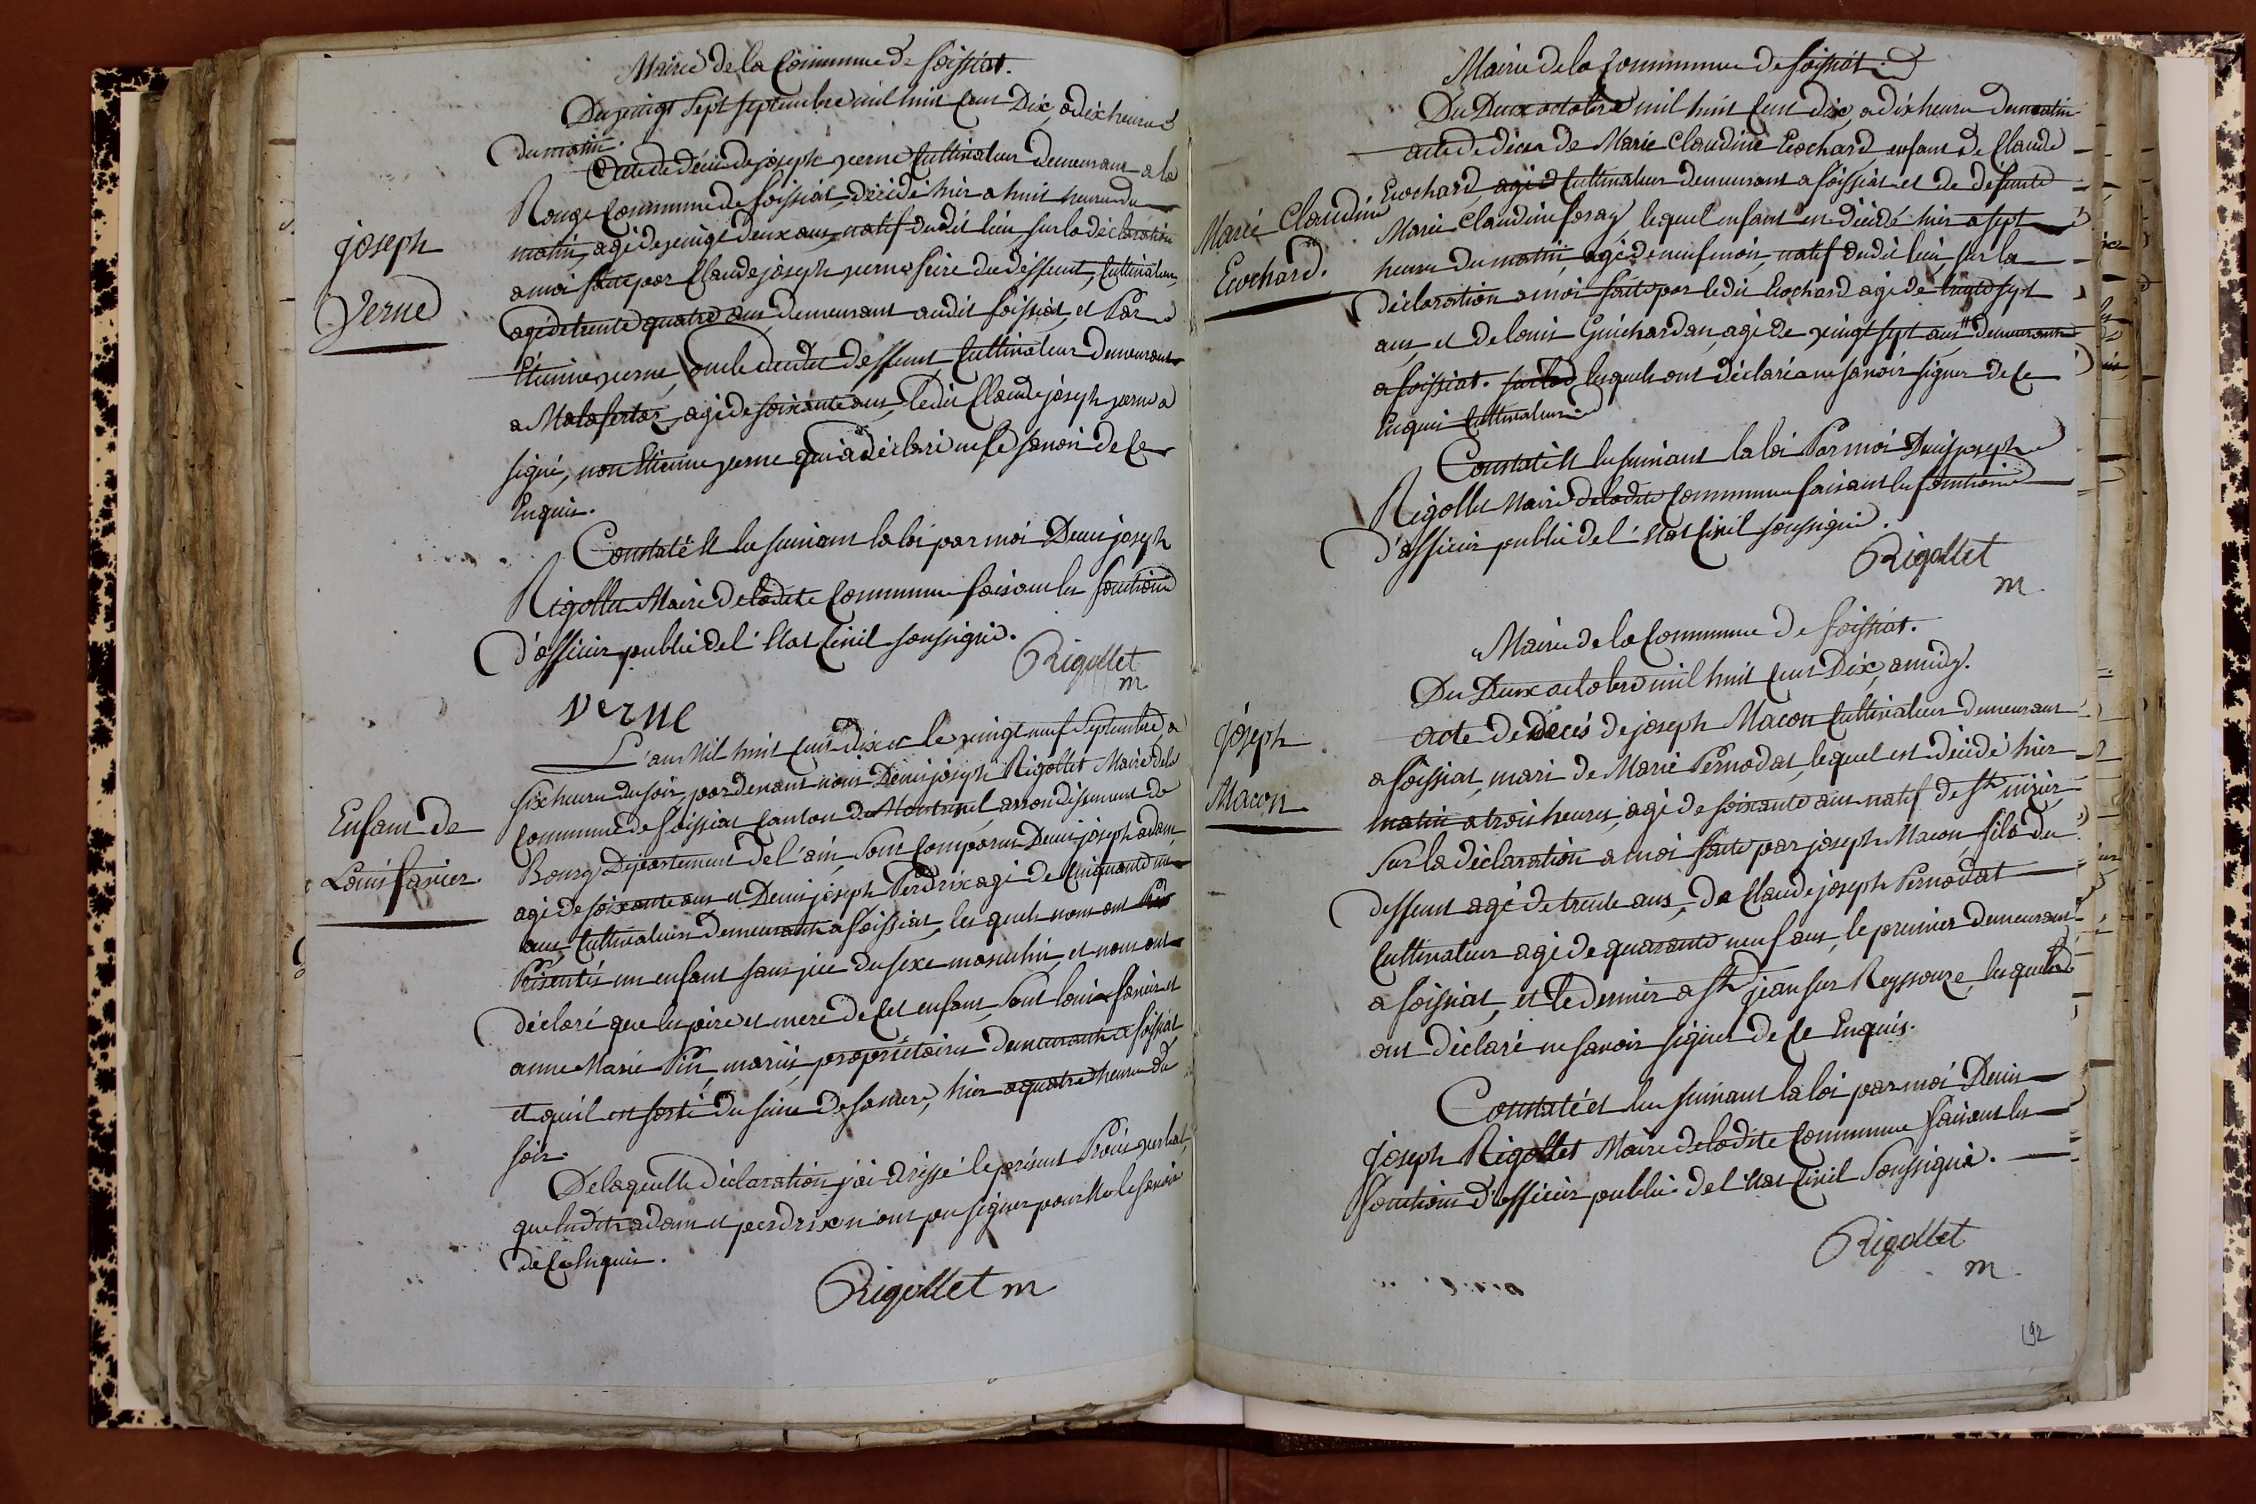 Mairie de la Commune de foissiat.
Du vingt Sept septembre mil huit Cent Dix, a dix heures
du matin.
Acte de décès de joseph verne Cultivateur demeurant a la
Rouge Commune de foissiat, décédé hier a huit heures du
matin, agé de vingt deux ans, natif dudit lieu sur la déclaration
a moi faite par Claude joseph verne frere du deffunt, Cultivateur,
agé de trente quatre ans, demeurant audit foissiat, et Par
Etienne verne, oncle dudit deffunt Cultivateur demeurant
a Malafertaz, agé de soixante ans, ledit Claude joseph verne a
signé, non Etienne verne qui a déclaré ne le savoir de Ce
Enquis.
Constaté et lu suivant la loi par moi Denis joseph
Rigollet Maire de ladite Commune faisant les fonctions
d'officier public de l'Etat Civil soussigné.
Rigollet
m
verne
joseph
Verne
L'an Mil huit Cent dix et le vingt neuf Septembre, a
six heures du soir, pardevant nous Denis joseph Rigollet Maire de la
Commune de foissiat Canton de Montrevel, arrondissement de
Bourg Département de l'ain, Sont Comparus Denis joseph adam
agé de soixante ans et Denis joseph Perdrix agé de Cinquante
ans, Cultivateurs demeurants a foissiat, les quels nous ont
Présentés un enfant sans vie du sexe masculin, et nous ont
déclaré que les père et mere de Cet enfant, Sont louis favier et
anne Marie Pin, mariés, propriétaires demeurants a foissiat,
et qu'il est sorti du sein de sa mere, hier a quatre heures du
soir.
De laquelle déclaration j'ai dressé le présent Procès verbal,
que lesdits adam et perdrix n'ont pu signer pour ne le savoir
de Ce Enquis.
Rigollet m
Enfant de
Louis favier.
Mairie de la Commune de foissiat.
Du Deux octobre mil huit Cent dix, a dix heures du matin
acte de décès de Marie Claudine Ecochard, enfant de Claude
Ecochard, agé Cultivateur demeurant a foissiat et de defunte
Marie Claudine feray, lequel enfant est décédé hier a sept
heures du matin, agé de neuf mois, natif dudit lieu, sur la
déclaration a moi faite par ledit Ecochard agé de trente sept
ans, et de louis Guichardan, agé de vingt sept ans demeurants
a foissiat. lesquels ont déclaré ne savoir signer de Ce
Enquis Cultivateurs
Constaté et lu suivant la loi Par moi Denis joseph
Rigollet Maire de ladite Commune faisant les fonctions
d'officier public de l'Etat Civil soussigné.
Rigollet
m
Marie Claudine
Ecochard.
Mairie de la Commune de foissiat.
Du Deux octobre mil huit Cent Dix, a midy.
acte de décès de joseph Macon Cultivateur demeurant
a foissiat, mari de Marie Pernodat, lequel est décédé hier
matin a trois heures, agé de soixante ans natif de St nizier,
Sur la déclaration a moi faite par joseph Macon, fils du
deffunt agé de trente ans, De Claude joseph Pernodat
Cultivateur agé de quarante neuf ans, le premier demeurant
a foissiat, et le dernier a St jean sur Reyssouze, lesquels
ont déclaré ne savoir signer de Ce Enquis.
Constaté et lu suivant la loi par moi Denis
joseph Rigollet Maire de ladite Commune faisant les
fonctions d'officier public de l'Etat Civil Soussigné.
Rigollet
m.
joseph
Macon
192